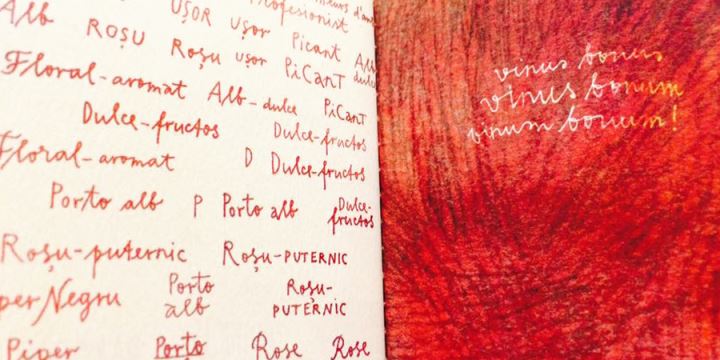 Alb UȘOR ușor Profesionist
ROȘU Roșu ușor Picant Alb
Floral-aromat Alb-dulce PiCanT dulce
PiCanT
Dulce-fructos Dulce-fructos
Floral-aromat D Dulce-fructos
Porto alb P Porto alb Dulce-fructos
Roșu-puternic Roșu-PUTERNIC
per Negru Porto alb Roșu-PUTERNIC
Piper Porto Rose Rose
vinus bonus
vinus bonum
vinum bonum!